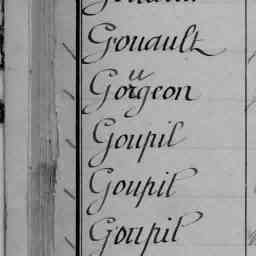 Grouault
Gourgeon
Goupil
Goupil
Goupil